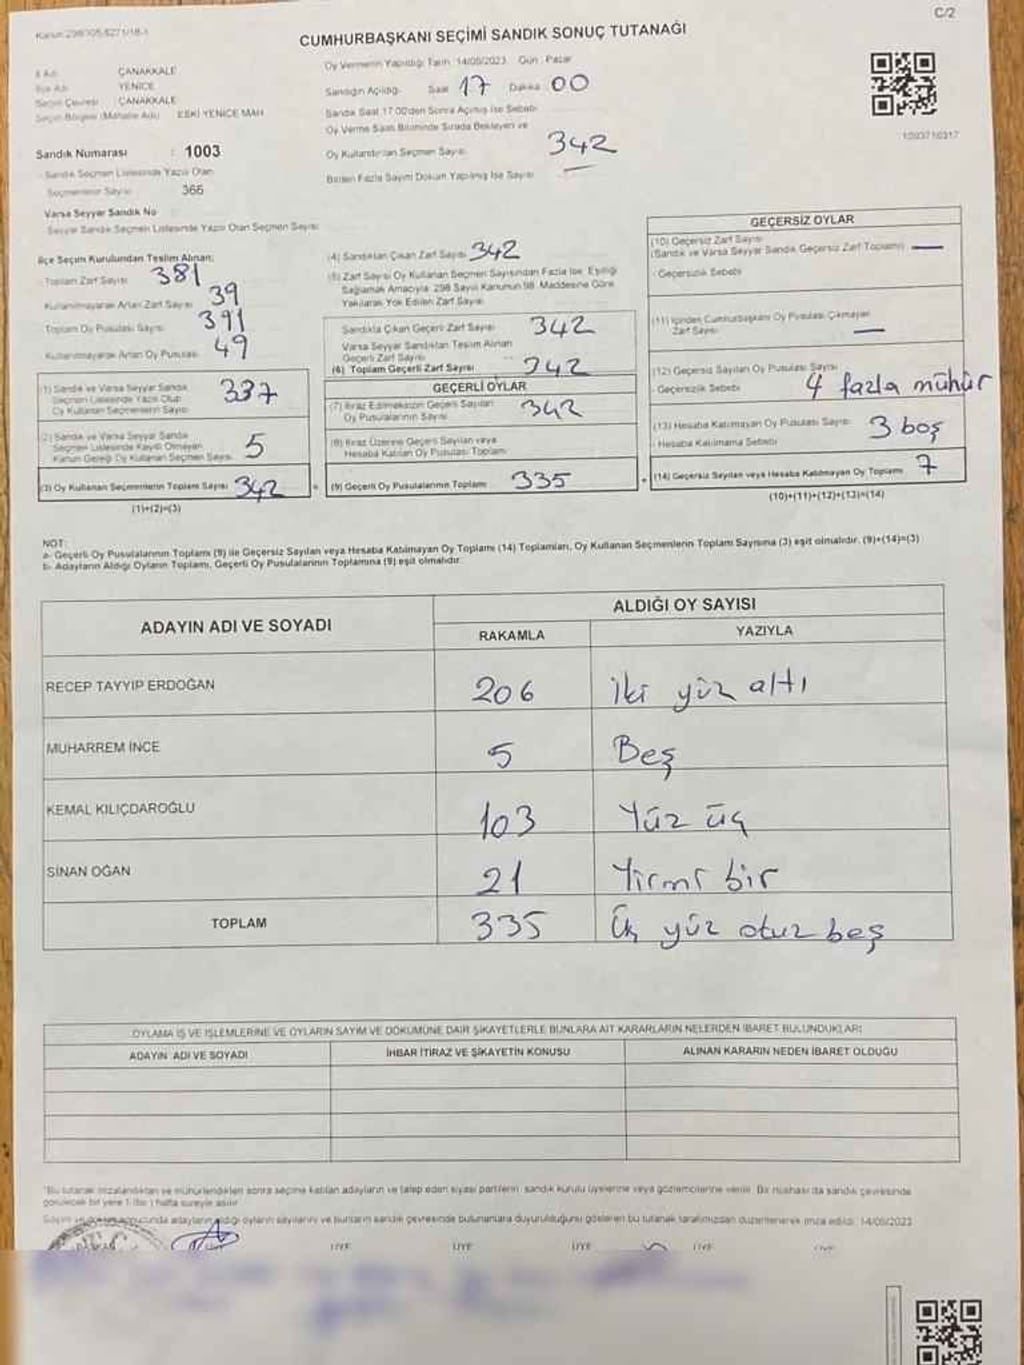 C/2
CUMHURBAŞKANI SEÇİMİ SANDIK SONUÇ TUTANAĞI
İl Adı ÇANAKKALE
İlçe Adı YENİCE
Seçim Çevresi ÇANAKKALE
Seçim Bölgesi (Mahalle Adı) ESKİ YENİCE MAH
Sandık Numarası : 1003
Sandık Seçmen Listesinde Yazılı Olan
Seçmenlerin Sayısı 366
Varsa Seyyar Sandık No
Seyyar Sandık Seçmen Listesinde Yazılı Olan Seçmen Sayısı
Oy Vermenin Yapıldığı Tarih 14/05/2023 Gün : Pazar
Sandığın Açıldığı Saat 17 Dakika 00
Sandık Saat 17.00'den Sonra Açılmış İse Sebebi
Oy Verme Saati Bitiminde Sırada Bekleyen ve
Oy Kullandırılan Seçmen Sayısı 342
Birden Fazla Sayım Döküm Yapılmış İse Sayısı —
1093710317
İlçe Seçim Kurulundan Teslim Alınan;
Toplam Zarf Sayısı 381
Kullanılmayarak Artan Zarf Sayısı 39
Toplam Oy Pusulası Sayısı 391
Kullanılmayarak Artan Oy Pusulası 49
(1) Sandık ve Varsa Seyyar Sandık
Seçmen Listesinde Yazılı Olup
Oy Kullanan Seçmenlerin Sayısı 337
(2) Sandık ve Varsa Seyyar Sandık
Seçmen Listesinde Kayıtlı Olmayan
Kanun Gereği Oy Kullanan Seçmen Sayısı 5
(3) Oy Kullanan Seçmenlerin Toplam Sayısı 342
(1)+(2)=(3)
(4) Sandıktan Çıkan Zarf Sayısı 342
(5) Zarf Sayısı Oy Kullanan Seçmen Sayısından Fazla İse, Eşitliği
Sağlamak Amacıyla 298 Sayılı Kanunun 98. Maddesine Göre
Yakılarak Yok Edilen Zarf Sayısı
Sandıkta Çıkan Geçerli Zarf Sayısı 342
Varsa Seyyar Sandıktan Teslim Alınan
Geçerli Zarf Sayısı
(6) Toplam Geçerli Zarf Sayısı 342
GEÇERLİ OYLAR
(7) İtiraz Edilmeksizin Geçerli Sayılan
Oy Pusulalarının Sayısı 342
(8) İtiraz Üzerine Geçerli Sayılan veya
Hesaba Katılan Oy Pusulası Toplamı
= (9) Geçerli Oy Pusulalarının Toplamı 335
GEÇERSİZ OYLAR
(10) Geçersiz Zarf Sayısı
(Sandık ve Varsa Seyyar Sandık Geçersiz Zarf Toplamı) —
Geçersizlik Sebebi
(11) İçinden Cumhurbaşkanı Oy Pusulası Çıkmayan
Zarf Sayısı —
(12) Geçersiz Sayılan Oy Pusulası Sayısı
Geçersizlik Sebebi 4 fazla mühür
(13) Hesaba Katılmayan Oy Pusulası Sayısı 3 boş
Hesaba Katılmama Sebebi
+ (14) Geçersiz Sayılan veya Hesaba Katılmayan Oy Toplamı 7
(10)+(11)+(12)+(13)=(14)
NOT:
a- Geçerli Oy Pusulalarının Toplamı (9) ile Geçersiz Sayılan veya Hesaba Katılmayan Oy Toplamı (14) Toplamları, Oy Kullanan Seçmenlerin Toplam Sayısına (3) eşit olmalıdır. (9)+(14)=(3)
b- Adayların Aldığı Oyların Toplamı, Geçerli Oy Pusulalarının Toplamına (9) eşit olmalıdır.
ADAYIN ADI VE SOYADI
ALDIĞI OY SAYISI
RAKAMLA YAZIYLA
RECEP TAYYIP ERDOĞAN 206 iki yüz altı
MUHARREM İNCE 5 Beş
KEMAL KILIÇDAROĞLU 103 Yüz üç
SİNAN OĞAN 21 Yirmi bir
TOPLAM 335 Üç yüz otuz beş
OYLAMA İŞ VE İŞLEMLERİNE VE OYLARIN SAYIM VE DÖKÜMÜNE DAİR ŞİKAYETLERLE BUNLARA AİT KARARLARIN NELERDEN İBARET BULUNDUKLARI
ADAYIN ADI VE SOYADI İHBAR İTİRAZ VE ŞİKAYETİN KONUSU ALINAN KARARIN NEDEN İBARET OLDUĞU
*Bu tutanak imzalandıktan ve mühürlendikten sonra seçime katılan adayların ve talep eden siyasi partilerin sandık kurulu üyelerine veya gözlemcilerine verilir. Bir nüshası da sandık çevresinde
görülecek bir yere 1 (bir) hafta süreyle asılır.
adayların aldığı oyların sayılarını ve bunların sandık çevresinde bulunanlara duyurulduğunu gösteren bu tutanak tarafımızdan düzenlenerek imza edildi. 14/05/2023
ÜYE ÜYE ÜYE ÜYE